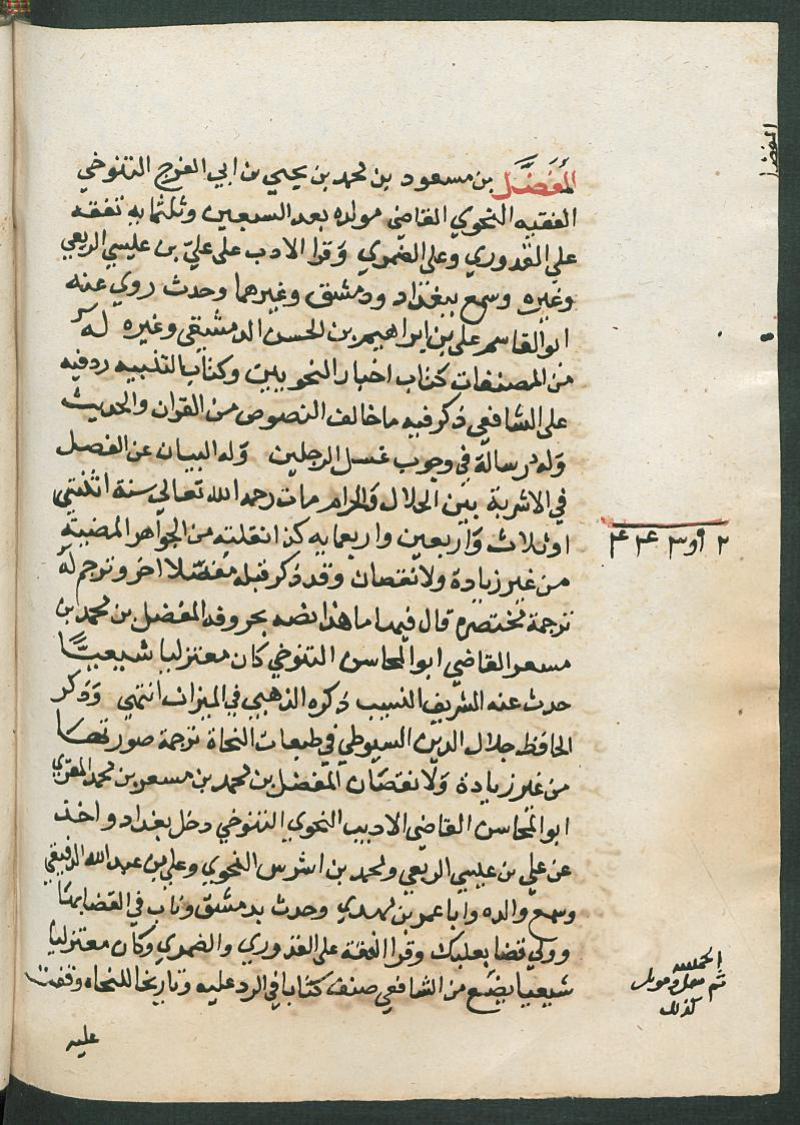 المُفَضَّل بن مسعود بن محمد بن يحيى بن ابي الفرج التنوخي
الفقيه النحوي القاضي مولده بعد السبعين وثلثمايه تفقه
علي القدوري وعلى الضمري وَقرا الادب على عليّ بن عليسي الربعي
وغيره وسمع ببغداد ودمشق وغيرهما وحدث روي عنه
ابو القاسم علي بن ابراهيم بن الحسن الدمشقي وغيره له
من المصنفات كتاب اخبار النحويين وكتاب التنبيه رد فيه
على الشافعي ذكر فيه ما خالف النصوص من القران والحديث
وله رسالة في وجوب غسل الرجلين وَله البيان عن الفصل
في الاشربة بين الحلال والحرام مات رحمه الله تعالي سنة اثنتي
او ثلاث وَاربعين واربعمايه كذا نقلته من الجواهر المضية
من غير زيادة ولا نقصان وقد ذكر قبله مفضلا اخر وترجم له
ترجمة مختصره قال فيها ما هذا نصه بحروفه المفضل بن محمد بن
مسعر القاضي ابو المحاسن التنوخي كان معتزليا شيعيًّا
حدث عنه الشريف النسيب ذكره الذهبي في الميزان انتهي وَذكر
الحافظ جلال الدين السيوطي في طبقات النحاة ترجمة صورتها
من غير زيادة وَلا نقصَان المفضل بن محمد بن مسعر بن محمد المعري
ابو المحاسن القاضي الاديب النحوي التنوخي دخل بغداد واخذ
عن علي بن عليسي الربعي ومحمد بن اشرس النحوي وعلي بن عبد الله الدقيقي
وسمع والده وابا عمر بن مهدي وحدث بدمشق وناب في القضا بها
وولي قضا بعلبك وقرا الفقة على القدوري والضمري وكان معتزليا
شيعيا يضَع من الشافعي صنف كتابا في الرد عليه وتاريخا للنحاه وقفت
عليه
المفضل
٢ او ٣ ٤٤٣
الحمد لله
ثم
كذلك